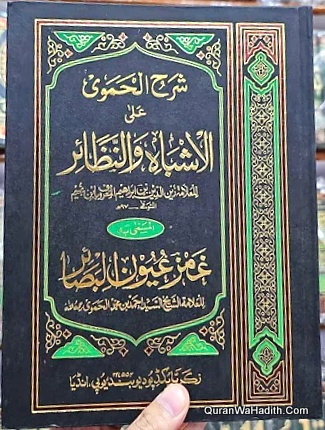 شرح الحموى
على
الأشباه والنظائر
للعلامة زين الدين بن ابراهيم المعروف بابن نجيم
المسمى ب
غمز عيون البصائر
للعلامة الشيخ السيد احمد بن محمد الحموى
زكريا بكڈپو ديوبند يوپى، انڈيا
QuranWaHadith.Com